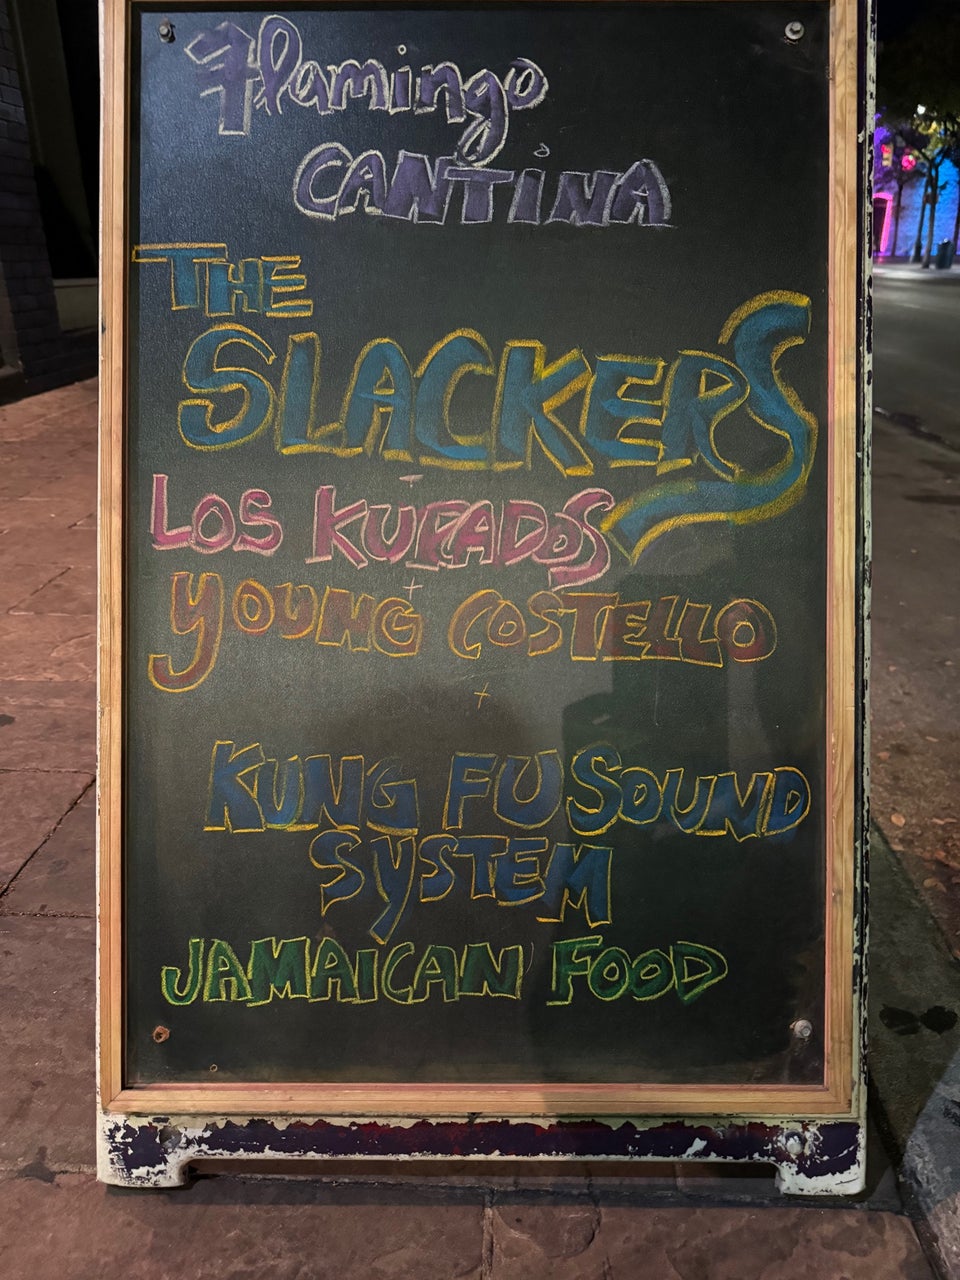 Flamingo
CANTINA
THE
SLACKERS
LOS KURADOS
+
YOUNG COSTELLO
+
KUNG FU SOUND
SYSTEM
JAMAICAN FOOD